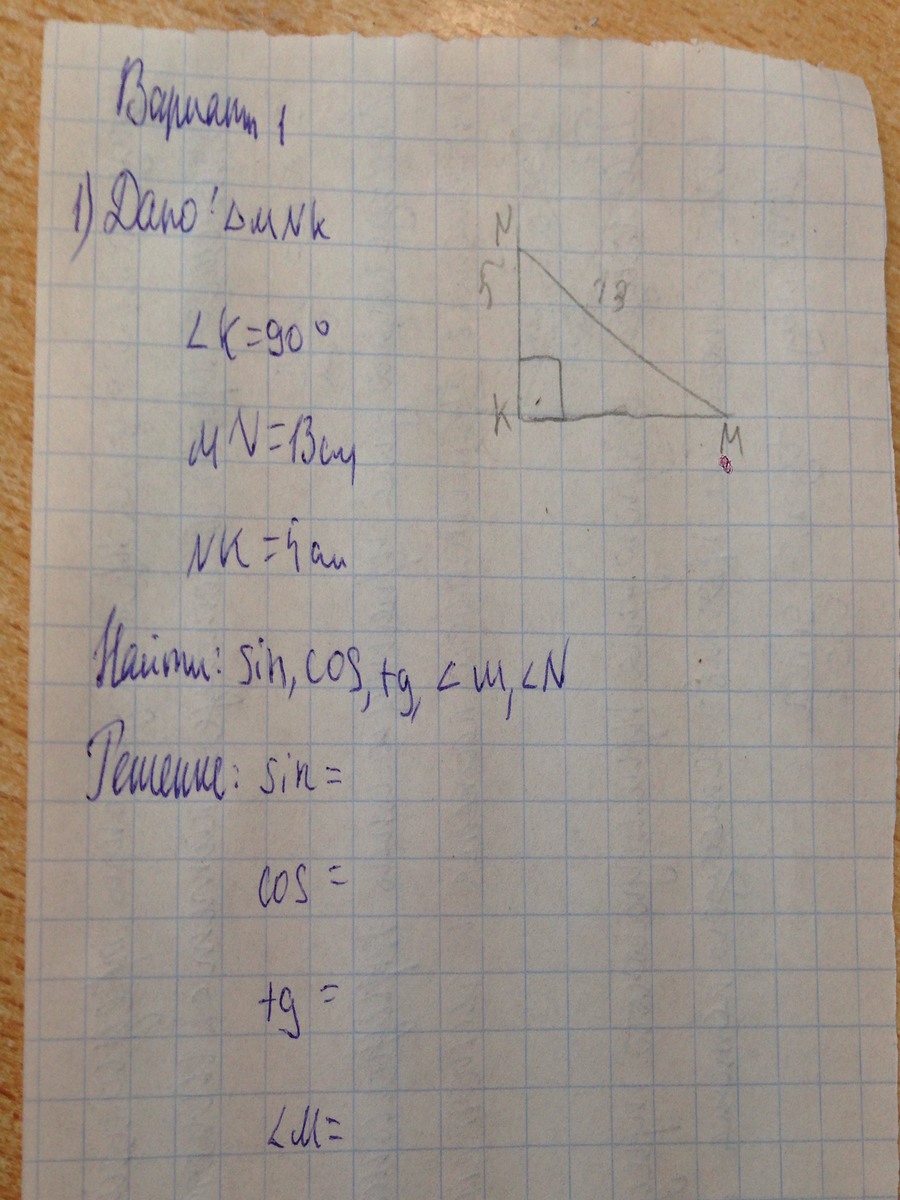 Вариант 1
1) Дано: △MNK
N
5
13
∠K=90°
K
M
MN=13см
NK=5см
Найти: sin, cos, tg, ∠M, ∠N
Решение: sin=
cos=
tg=
∠M=